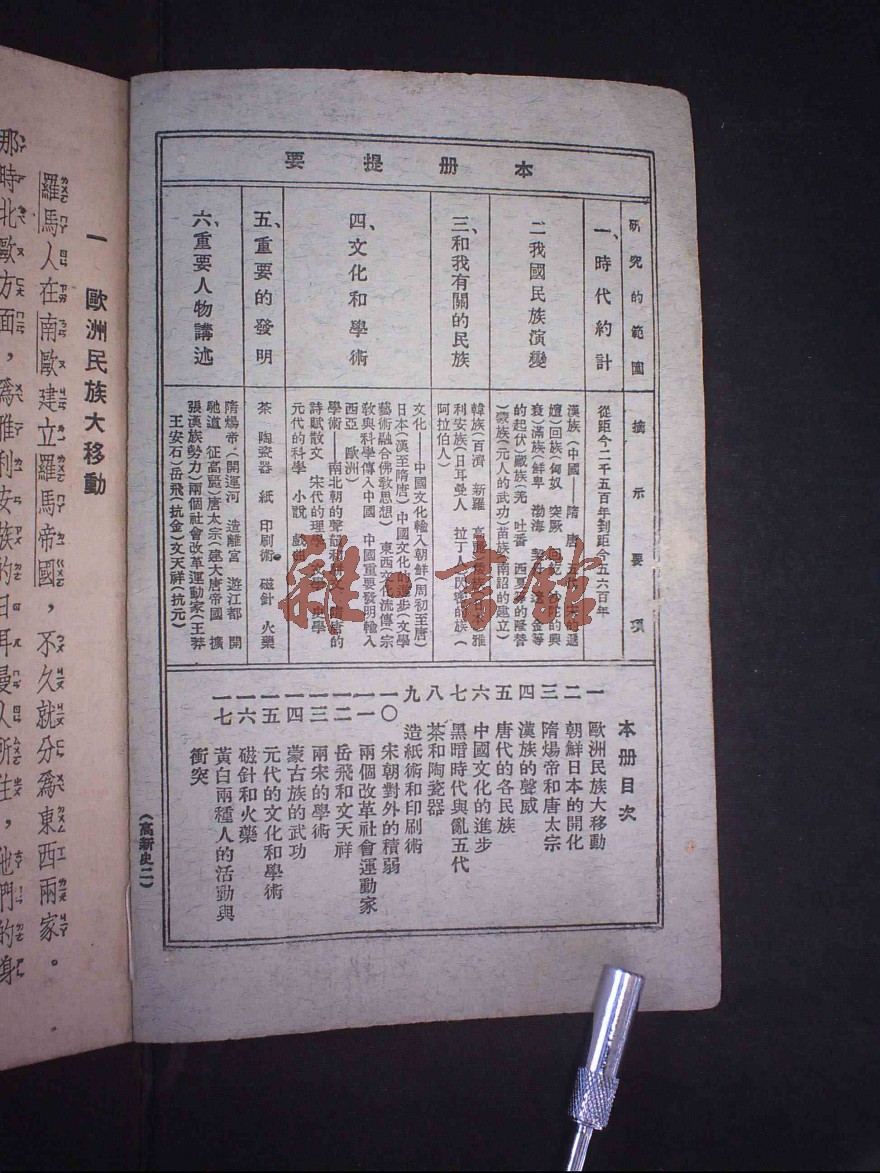 本册提要
研究的範圍
摘示要項
一、時代約計
從距今二千五百年到距今五六百年
二、我國民族演變
漢族(中國——隋 唐 五代 宋的遞
嬗)回族(匈奴 突厥 回紇 的興
衰)滿族(鮮卑 渤海 契丹 遼 金等
的起伏)藏族(羌 吐番 西夏等的隆替
)蒙族(元人的武功)苗族(南詔的建立)
三、和我有關的民族
韓族(百濟 新羅 高麗)倭族(日本)雅
利安族(日耳曼人 拉丁人)閃族(
阿拉伯人)
四、文化和學術
文化——中國文化輸入朝鮮(周初至唐)
日本(漢至隋唐) 中國文化的進步(文學
藝術融合佛敎思想) 東西文化流傳(宗
敎與科學傳入中國 中國重要發明輸入
西亞 歐洲)
學術——南北朝的聲韻和駢文 隋唐的
詩賦散文 宋代的理學 文學 史學
元代的科學 小說 戲曲
五、重要的發明
茶 陶瓷器 紙 印刷術 磁針 火藥
六、重要人物講述
隋煬帝(開運河 造離宮 遊江都 開
馳道 征高麗)唐太宗(建大唐帝國 擴
張漢族勢力)兩個社會改革運動家(王莽
王安石)岳飛(抗金)文天祥(抗元)
本册目次
一 歐洲民族大移動
二 朝鮮日本的開化
三 隋煬帝和唐太宗
四 漢族的聲威
五 唐代的各民族
六 中國文化的進步
七 黑暗時代與亂五代
八 茶和陶瓷器
九 造紙術和印刷術
一〇 宋朝對外的積弱
一一 兩個改革社會運動家
一二 岳飛和文天祥
一三 兩宋的學術
一四 蒙古族的武功
一五 元代的文化和學術
一六 磁針和火藥
一七 黃白兩種人的活動與
衝突
(高新史二)
雜書館
一 歐洲民族大移動
羅馬人在南歐建立羅馬帝國,不久就分爲東西兩家。
那時北歐方面,爲雅利安族的日耳曼人所住,他們的身